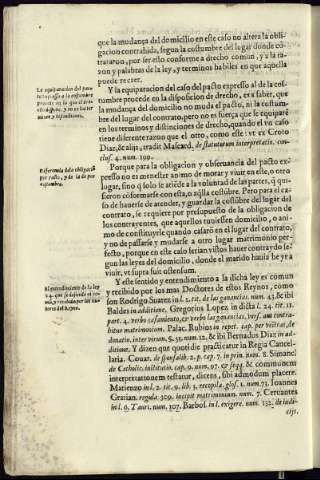 que la mudança del domicilio en este caso no altera la obli-
gacion contrahida, segun la costumbre del lugar donde cõ-
trataron, por ser esto conforme a drecho comun, y a la ra-
zon y palabras de la ley, y terminos habiles en que aquella
puede tener.
Y la equiparacion del caso del pacto expresso al de la cos-
tumbre procede en la disposicion de drecho, es a saber, que
la mudança del domicilio no muda el pacto, ni la costum-
bre del lugar del contrato, pero no es fuerça que se equiparē
en los terminos y distinciones de drecho, quando el vn caso
tiene diferente razon que el otro, como este ut ex Croto
Diaz, & alijs, tradit Mascard. de statutorum interpretatio. con-
clus. 4. num. 199.
Porque para la obligacion y obseruancia del pacto ex-
presso no es menester animo de morar y viuir en este, o otro
lugar, sino q̃ solo se atiẽde a la voluntad de las partes, q̃ qui-
sieron cõformarse con esta, o aq̃lla costũbre. Pero para el ca-
so de hauerse de atender, y guardar la costũbre del lugar del
contrato, se requiere por presupuesto de la obligacion de
los contrayentes, que aquellos tuuiessen domicilio, o ani-
mo de constituyrle quando casaron en el lugar del contrato,
y no de passarse y mudarse a otro lugar matrimonio per-
fecto, porque en este caso serian vistos hauer contraydo se-
gun las leyes del domicilio, donde el marido hauia de yr a
viuir, vt supra fuit ostensum.
Y este sentido y entendimiento a la dicha ley es comun
y recibido por los mas Doctores de estos Reynos, como
son Rodrigo Suarez in l. 1. tit. de las ganancias. num. 43. & ibi
Baldes in additione. Gregorius Lopez in dicta l. 24. tit. 11.
part. 4. verbo casamiento, & verbo las ganancias, vers. aut contra-
hitur matrimonium. Palac. Rubios in repet. cap. per vestras, de
donatio. inter virum, §. 69. num. 12. & ibi Bernardus Diaz in ad-
ditione. Y dizen que quoti die practicatur in Regia Cancel-
laria. Couar. de sponsalib. 2. p. cap. 7. in prin. num. 8. Simanc.
de Catholic. institut. cap. 9. num. 97. & seqq. & communem
interpretationem testatur, dicens, sibi admodum placere.
Matienzo in l. 2. tit. 9. lib. 5. recopila. glos. 1. num. 73. Ioannes
Gratian. regula 309. incipit matrimonium. num. 7. Ceruantes
in l. 9. Tauri, num. 107. Barbos. in l. exigere. num. 132. de iudi-
cijs.